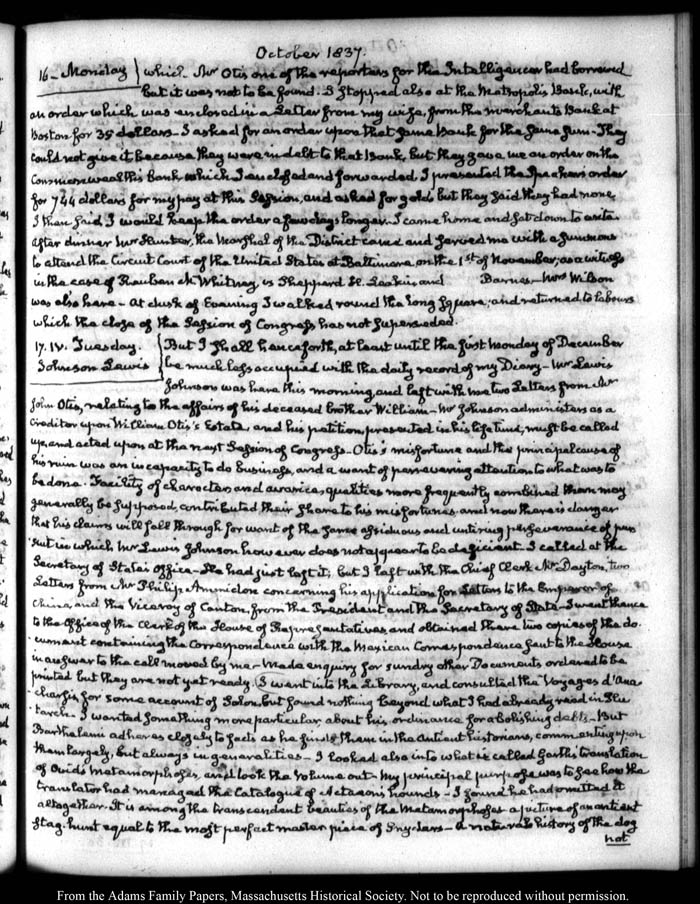 October 1837.
16 – Monday } which Mr Otis one of the reporters for the Intelligencer had borrowed
but it was not to be found. I stopped also at the Metropolis Bank, with
an order which was enclosed in a Letter from my wife, from the Merchants Bank at
Boston for 35 dollars – I asked for an order upon that same Bank for the same sum – They
could not give it because they were in debt to that Bank, but they gave me an order on the
Commonwealth's Bank which I enclosed and forwarded. I presented the Speakers order
for 744 dollars for my pay at this Session, and asked for gold but they said they had none.
I then said I would keep the order a few days longer. I came home and sat down to write.
After dinner Mr Hunter, the Marshal of the District came and served me with a Summons
to attend the Circuit Court of the United States at Baltimore, on the 1st of November, as a witness
in the case of Reuben M. Whitney vs Sheppard and Barnes – Mrs Wilson
was also here – At dusk of Evening I walked round the long Square, and returned to labours
which the close of the Session of Congress has not superseded.
17. IV. Tuesday. { But I shall henceforth, at least until the first Monday of December
Johnson Lewis be much less occupied with the daily record of my Diary – Mr Lewis
Johnson was here this morning, and left with me two Letters from Mr
John Otis, relating to the affairs of his deceased brother William – Mr Johnson administers as a
Creditor upon William Otis's Estate, and his petition presented in his life time, must be called
up, and acted upon at the next Session of Congress. Otis's misfortune and the principal cause of
his ruin was an incapacity to do business, and a want of persevering attention to what was to
be done. Facility of character, and avarice, qualities more frequently combined than may
generally be supposed, contributed their share to his misfortunes and now there is danger
that his claims will fall through for want of the same assiduous and untiring perseverance of pur
suit in which Mr Lewis Johnson however does not appear to be deficient. I called at the
Secretary of State's office – He had just left it; but I left with the Chief Clerk Mr Dayton, two
Letters from Mr Philip Ammidon concerning his application for Letters to the Emperor of
China, and the Viceroy of Canton, from the President and the Secretary of State – I went thence
to the Office of the Clerk of the House of Representatives, and obtained there two copies of the do-
cument containing the Correspondence with the Mexican Correspondence sent to the House
in answer to the call moved by me – Made enquiry for sundry other Documents ordered to be
printed but they are not yet ready. I went into the Library, and consulted the Voyages d'Ana
charsis for some account of Solon, but found nothing beyond what I had already read in Plu
tarch. I wanted something more particular about his ordinance for abolishing debts – But
Barthelemi adheres closely to facts as he finds them in the Antient historians, commenting upon
them largely, but always in generalities – I looked also into what is called Garth's translation
of Ovid's Metamorphoses, and took the Volume out – My principal purpose was to see how the
translator had managed the Catalogue of Actaeon's hounds – I found he had omitted it
altogether. It is among the transcendent beauties of the Metamorphoses a picture of an antient
stag-hunt equal to the most perfect master piece of Snyders – A natural history of the dog
not
From the Adams Family Papers, Massachusetts Historical Society. Not to be reproduced without permission.